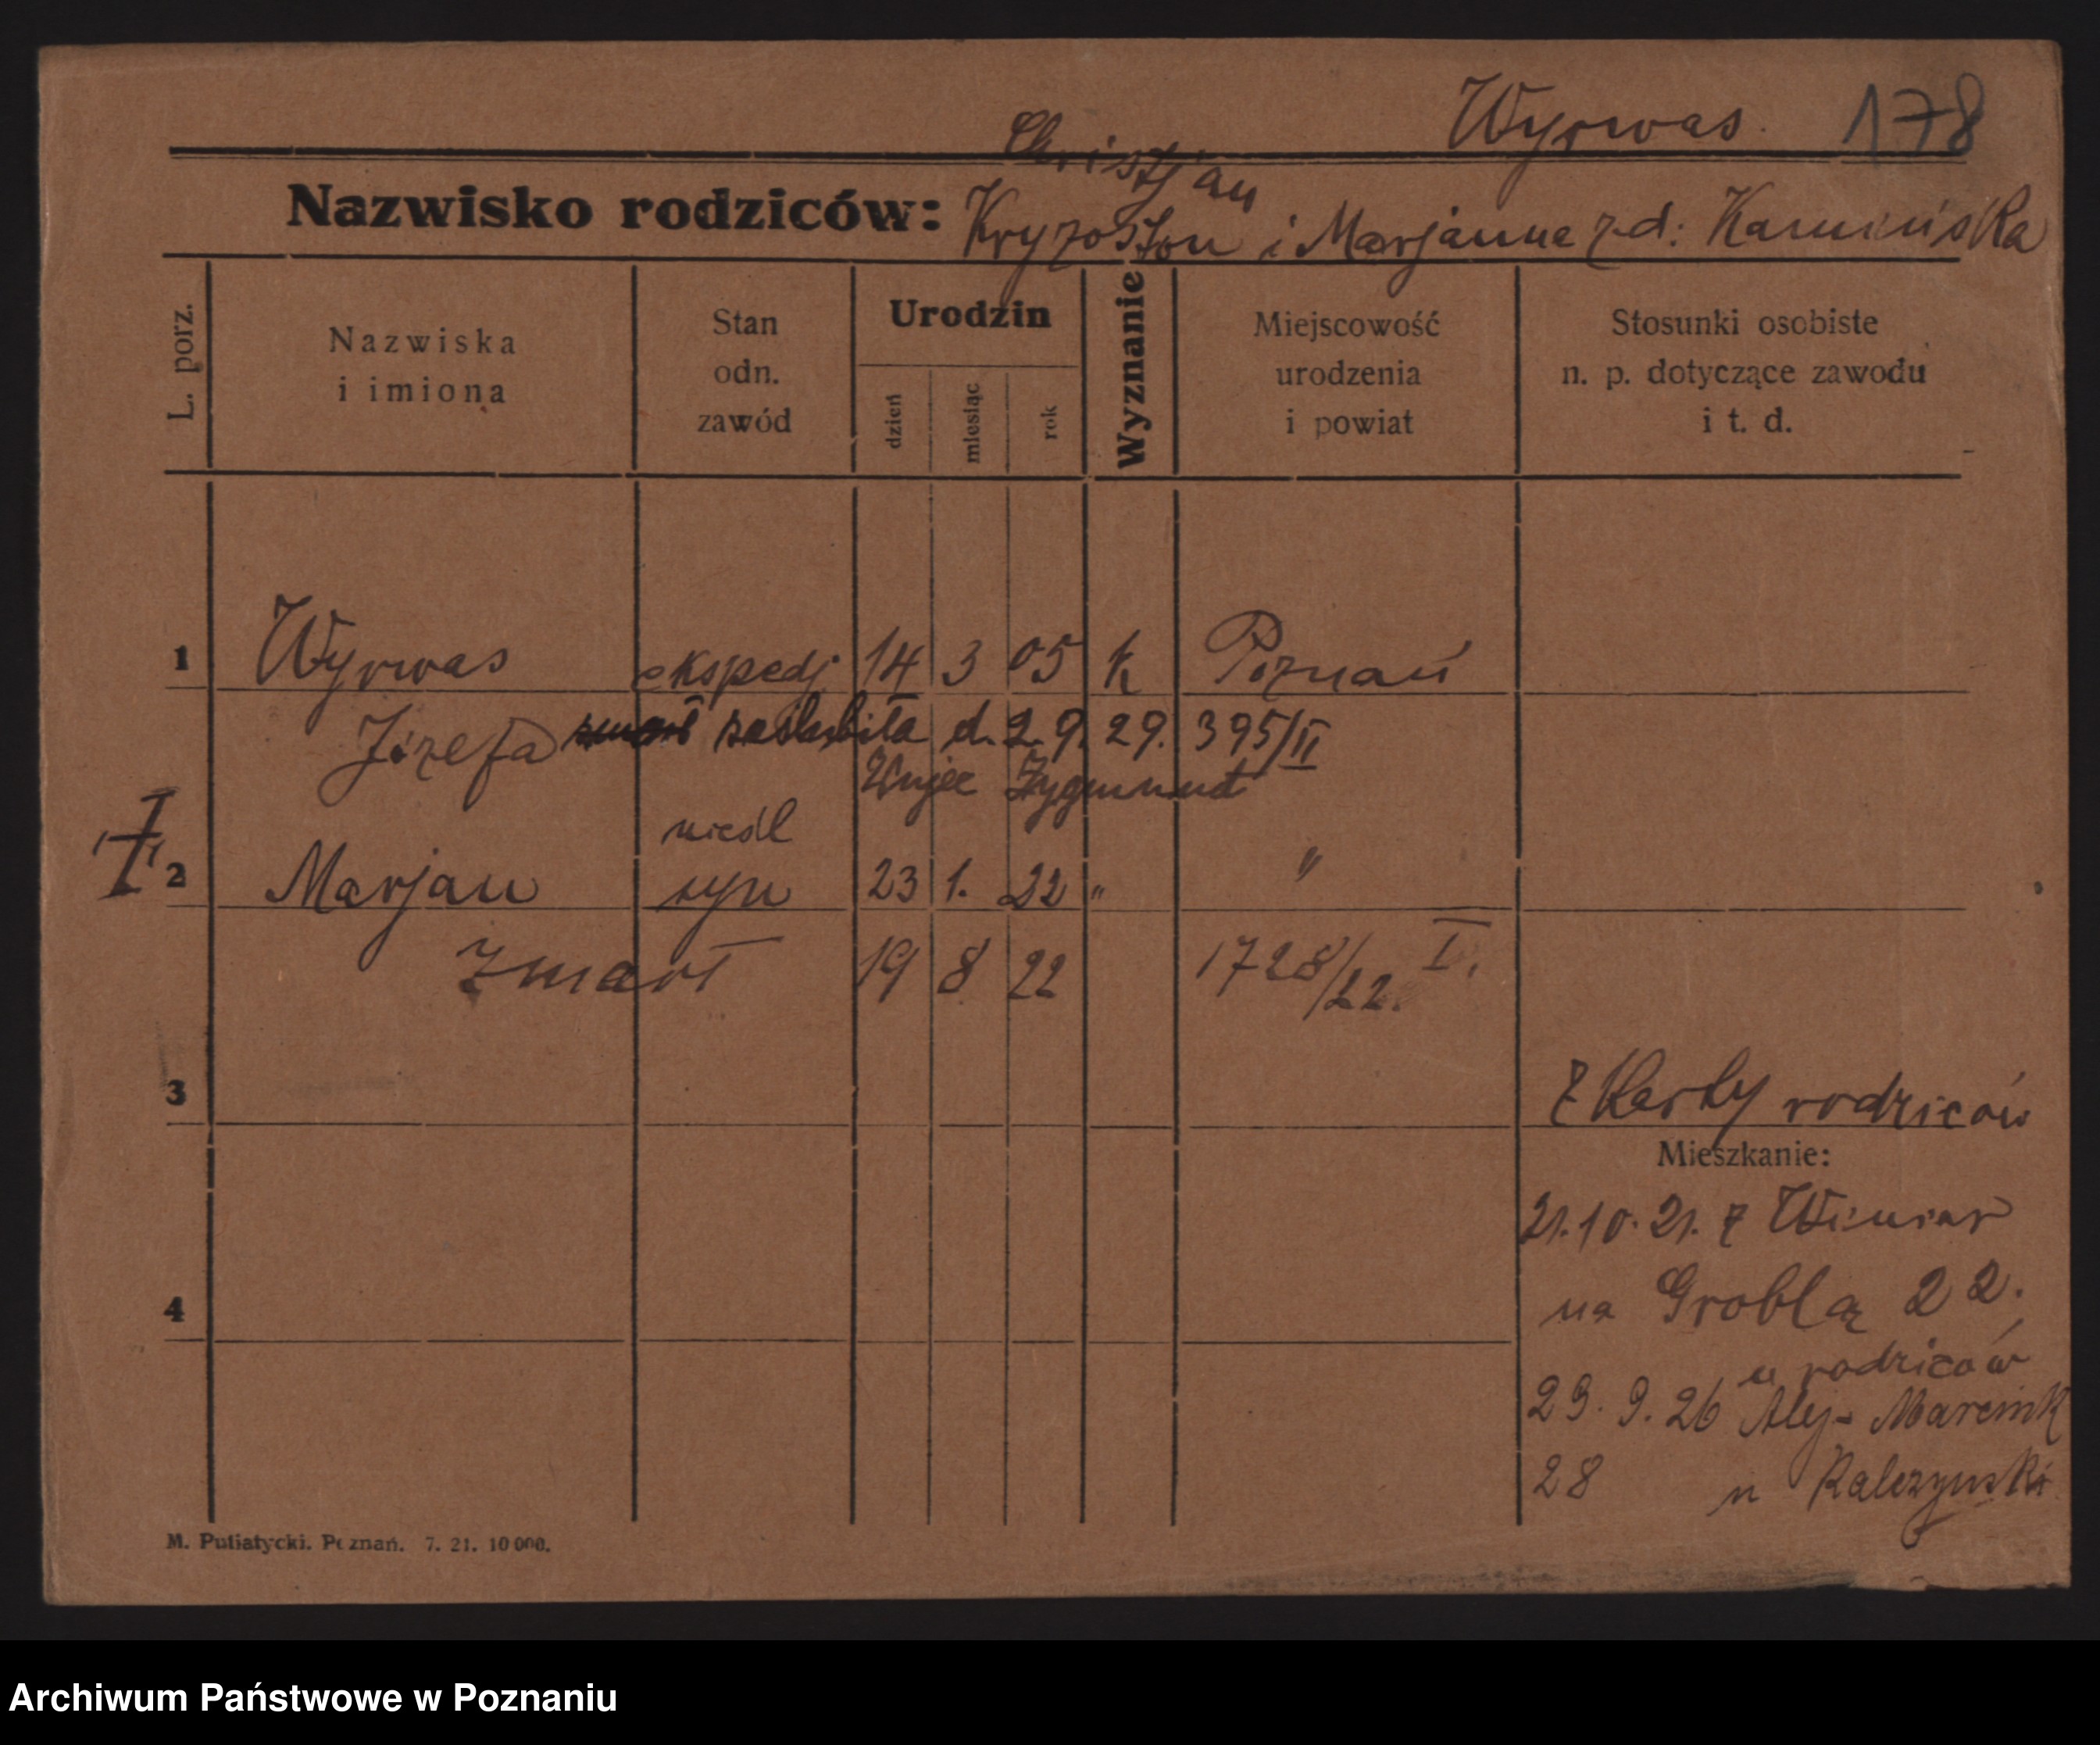 Wyrwas 178
Christjan
Nazwisko rodziców: Kryzostom i Marjanna zd: Kamińska
L. porz.
Nazwiska i imiona
Stan odn. zawód
Urodzin
dzień
miesiąc
rok
Wyznanie
Miejscowość urodzenia i powiat
Stosunki osobiste n. p. dotyczące zawodu i t. d.
1 Wyrwas ekspedj 14 3 05 k Poznań
Józefa zaślubiła d. 2. 9. 29. 395/II
Wujec Zygmunt
nieśl
2 Marjan syn 23 1. 22 " "
Zmarł 19 8 22 1728/22. I.
3 z Karty rodziców
Mieszkanie:
21.10.21. z Winiar
na Groblą 22.
4
u rodziców
29. 9. 26 Alej. Marcink
28 u Kalczynski
M. Putiatycki. Poznań. 7. 21. 10 000.
Archiwum Państwowe w Poznaniu